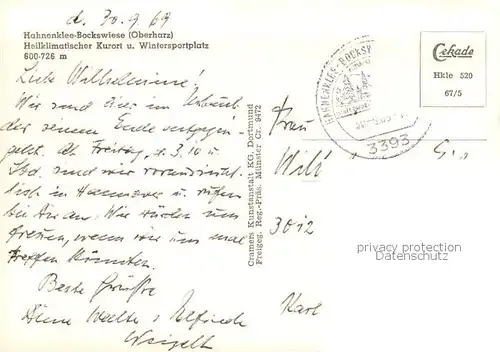 d. 30.9.69
Hahnenklee-Bockswiese (Oberharz)
Heilklimatischer Kurort u. Wintersportplatz
600-726 m
Liebe Wilhelmine!
Wir sind hier im Urlaub
der seinem Ende entgegen
geht. Ab Freitag, d. 3.10 u.
Sbd. sind wir voraussicht-
lich in Hannover u. rufen
bei Dir an. Wir würden uns
freuen, wenn wir uns mal
treffen könnten.
Beste Grüße
Deine Walter u. Elfriede
Weigelt
Cramers Kunstanstalt KG, Dortmund
Freigeg. Reg.-Präs. Münster Cr. 9472
HAHNENKLEE-BOCKSW
3393
Cekade
Hkle 520
67/5
Frau
3012
Karl
privacy protection
Datenschutz